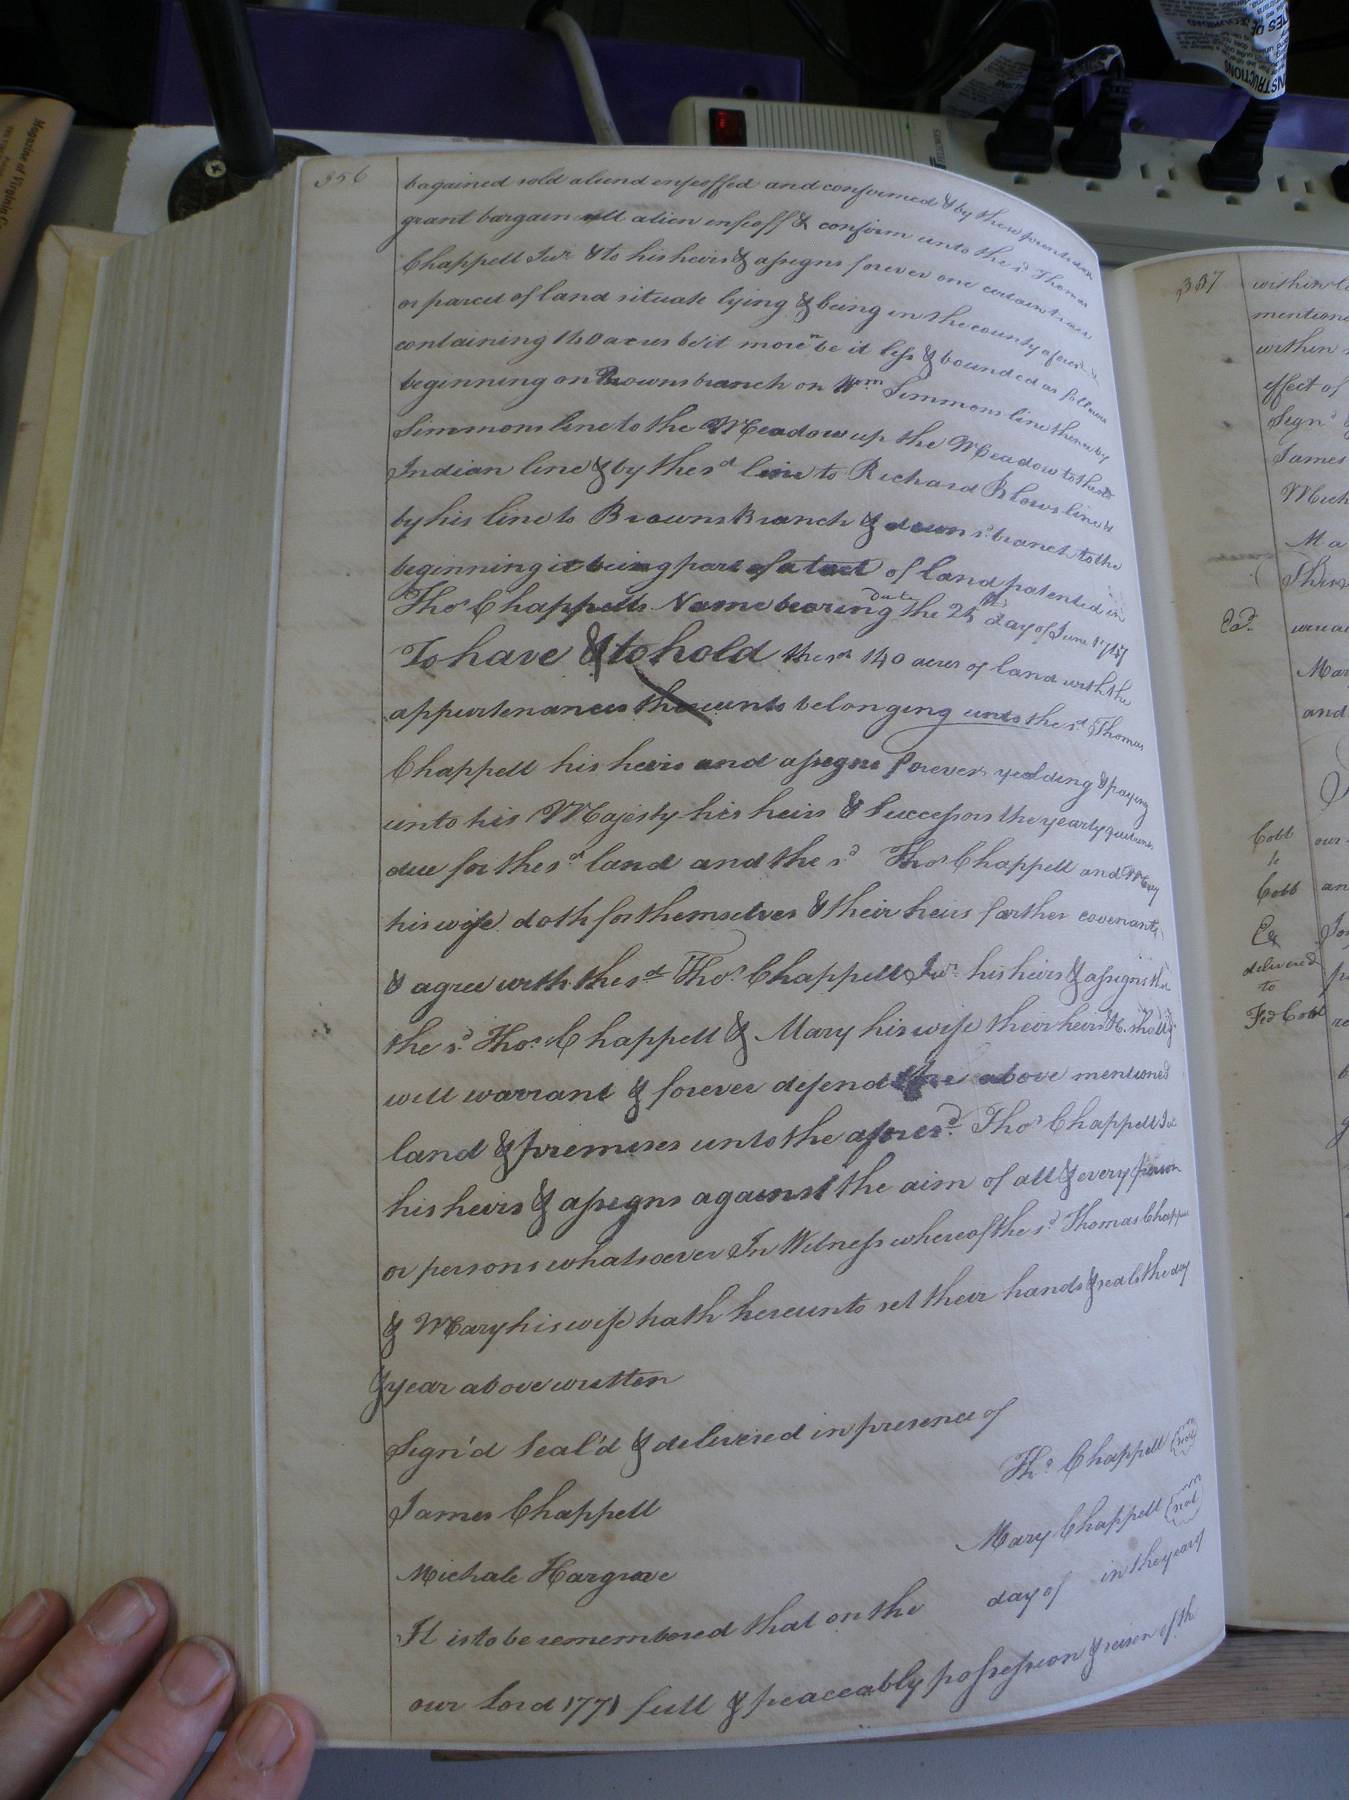 356
bagained sold aliend enfeoffed and confirmed & by these presents doth
grant bargain sell alien enfeoff & confirm unto the sd Thomas
Chappell Jur. & to his heirs & assigns forever one certain tract
or parcel of land situate lying & being in the county aforesd
containing 140 acres be it more or be it less & bounded as follows
beginning on Browns branch on Wm Simmons line thence by
Simmons line to the Meadow up the Meadow to the
Indian line & by the sd line to Richard Blows line &
by his line to Browns Branch & down sd branch to the
beginning it being part of a tract of land patented in
Thos Chappells Name bearing date the 25th day of June
To have & to hold the sd 140 acres of land with the
appurtenances thereunto belonging unto the sd Thomas
Chappell his heirs and assigns forever yealding & paying
unto his Majesty his heirs & Successors the yearly quitrents
due for the sd land and the sd Thos Chappell and Mary
his wife doth for themselves & their heirs farther covenant
& agree with the sd Thos. Chappell Jur. his heirs & assigns that
the sd Thos. Chappell & Mary his wife their heirs &c. shall &
will warrant & forever defend the above mentioned
land & premises unto the aforesd. Thos Chappell Jur
his heirs & assigns against the aim of all & every person
or persons whatsoever In Witness whereof the sd Thomas Chappell
& Mary his wife hath hereunto set their hands & seals the day
& year above written
Sign'd Seal'd & delivered in presence of
Ths. Chappell seal
James Chappell
Mary Chappell seal
Michale Hargrave
It is to be remembered that on the day of in the year of
our Lord 1771 full & peaceably possession & seisen of the
357
within
mentione
within
effect of
Sign'd
James
Mich
Ma
Exd.
Mar
and
Cobb
to
Cobb
Ex
delivered
to
Fed Cobb
our
an
Magazine of Virginia
INSTRUCTIONS